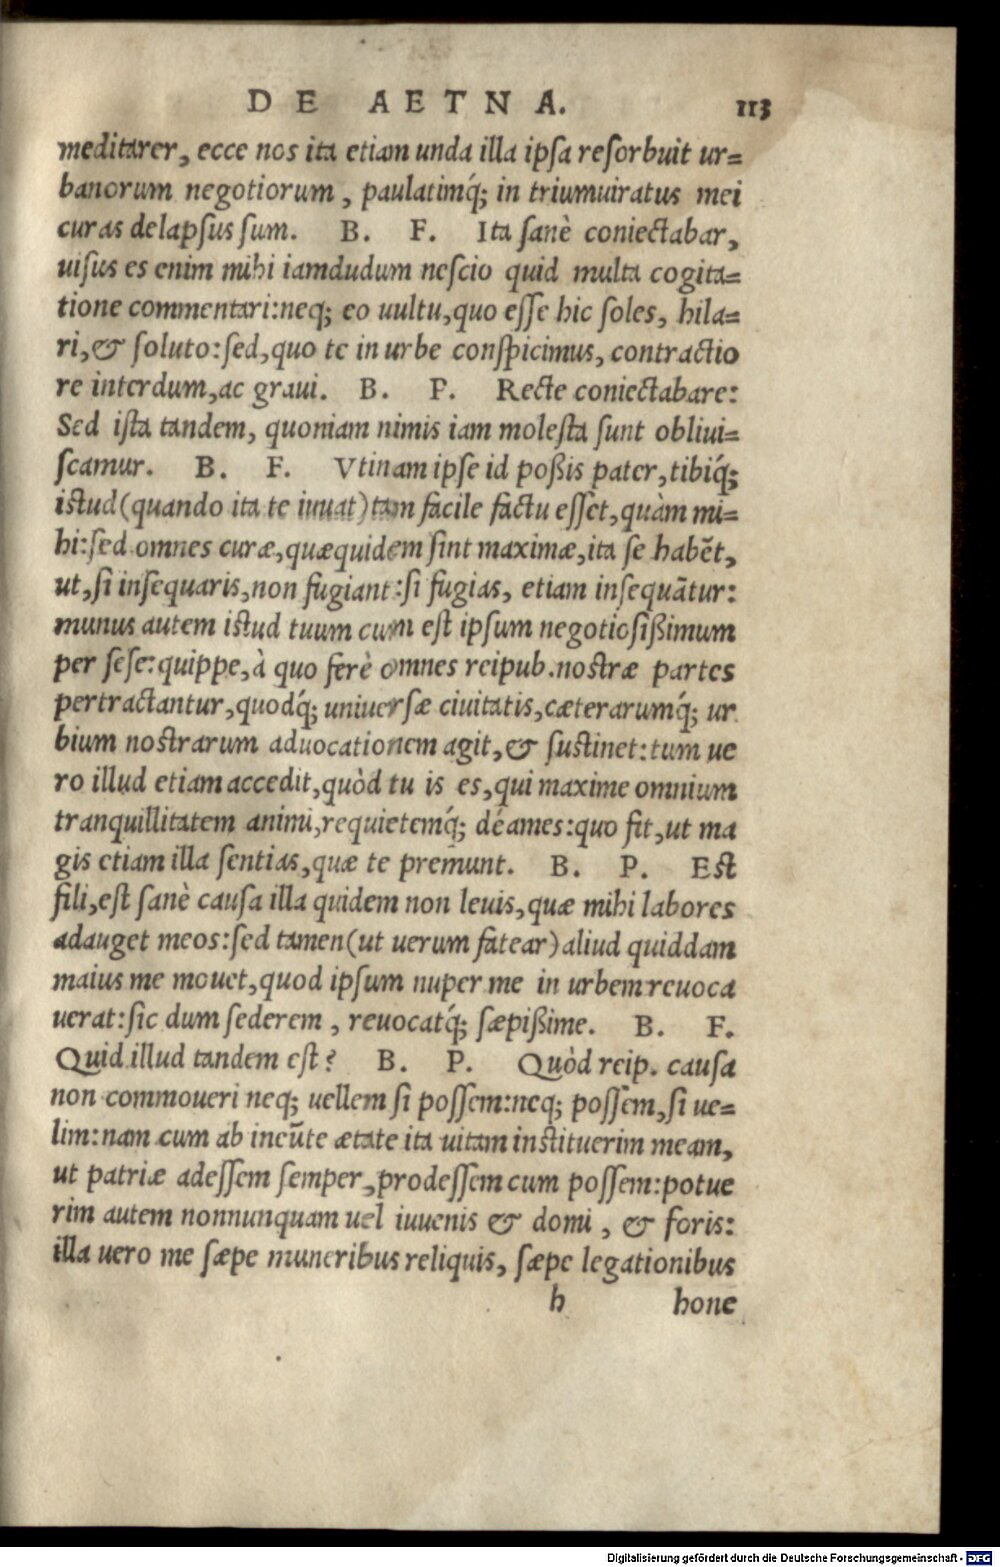 DE AETNA. 113
meditarer, ecce nos ita etiam unda illa ipsa resorbuit ur=
banorum negotiorum, paulatimq́; in triumuiratus mei
curas delapsus sum. B. F. Ita sanè coniectabar,
uisus es enim mihi iamdudum nescio quid multa cogita=
tione commentari:neq; eo uultu,quo esse hic soles, hila=
ri,& soluto:sed,quo te in urbe conspicimus, contractio
re interdum,ac graui. B. P. Recte coniectabare:
Sed ista tandem, quoniam nimis iam molesta sunt obliui=
scamur. B. F. Vtinam ipse id poßis pater,tibiq́;
istud(quando ita te iuuat)tam facile factu esset,quàm mi=
hi:sed omnes curæ,quæquidem sint maximæ,ita se habẽt,
ut,si insequaris,non fugiant:si fugias, etiam insequãtur:
munus autem istud tuum cum est ipsum negotiosißimum
per sese:quippe,à quo ferè omnes reipub.nostræ partes
pertractantur,quodq́; uniuersæ ciuitatis,cæterarumq́; ur
bium nostrarum aduocationem agit,& sustinet:tum ue
ro illud etiam accedit,quòd tu is es,qui maxime omnium
tranquillitatem animi,requietemq́; déames:quo fit,ut ma
gis etiam illa sentias,quæ te premunt. B. P. Est
fili,est sanè causa illa quidem non leuis,quæ mihi labores
adauget meos:sed tamen(ut uerum fatear)aliud quiddam
maius me mouet,quod ipsum nuper me in urbem reuoca
uerat:sic dum sederem, reuocatq́; sæpißime. B. F.
Quid illud tandem est? B. P. Quòd reip. causa
non commoueri neq; uellem si possem:neq; possem,si ue=
lim:nam cum ab ineũte ætate ita uitam instituerim meam,
ut patriæ adessem semper,prodessem cum possem:potue
rim autem nonnunquam uel iuuenis & domi, & foris:
illa uero me sæpe muneribus reliquis, sæpe legationibus
h hone
Digitalisierung gefördert durch die Deutsche Forschungsgemeinschaft - DFG